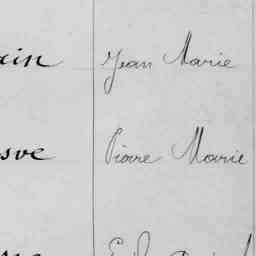 ain Jean Marie
sve Pierre Marie